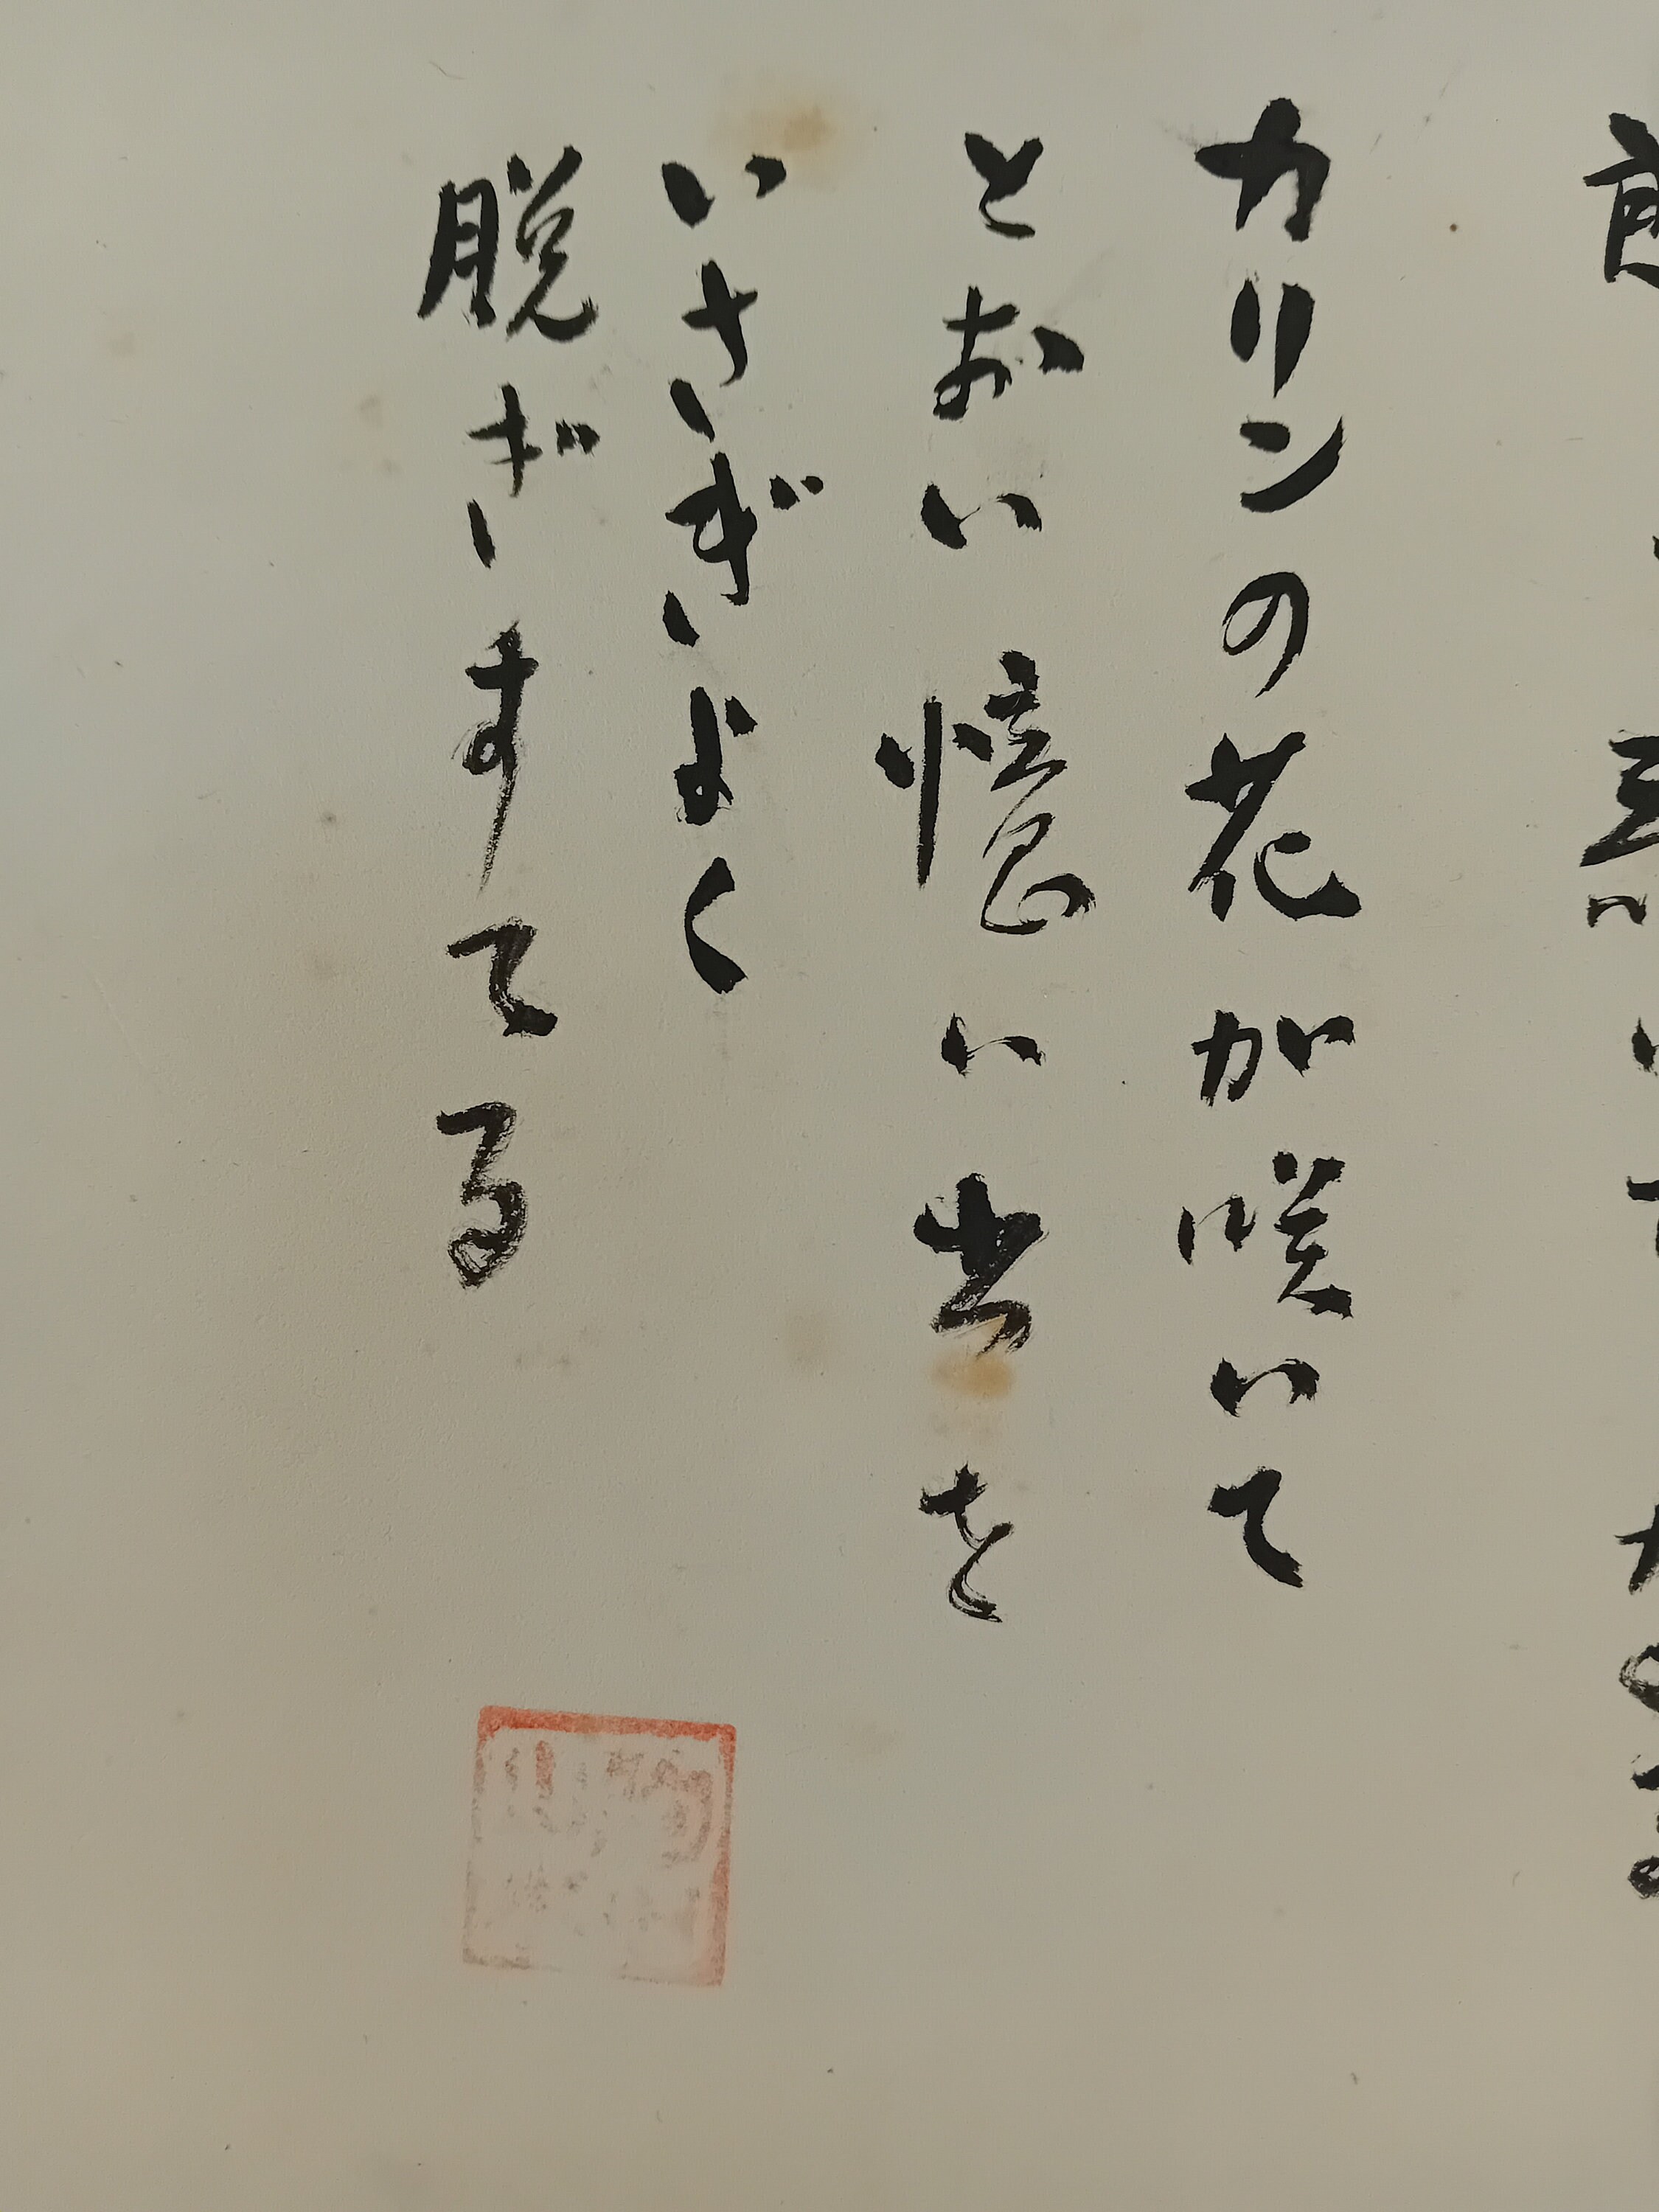 カリンの花が咲いて
とおい憶い出を
いさぎよく
脱ぎすてる